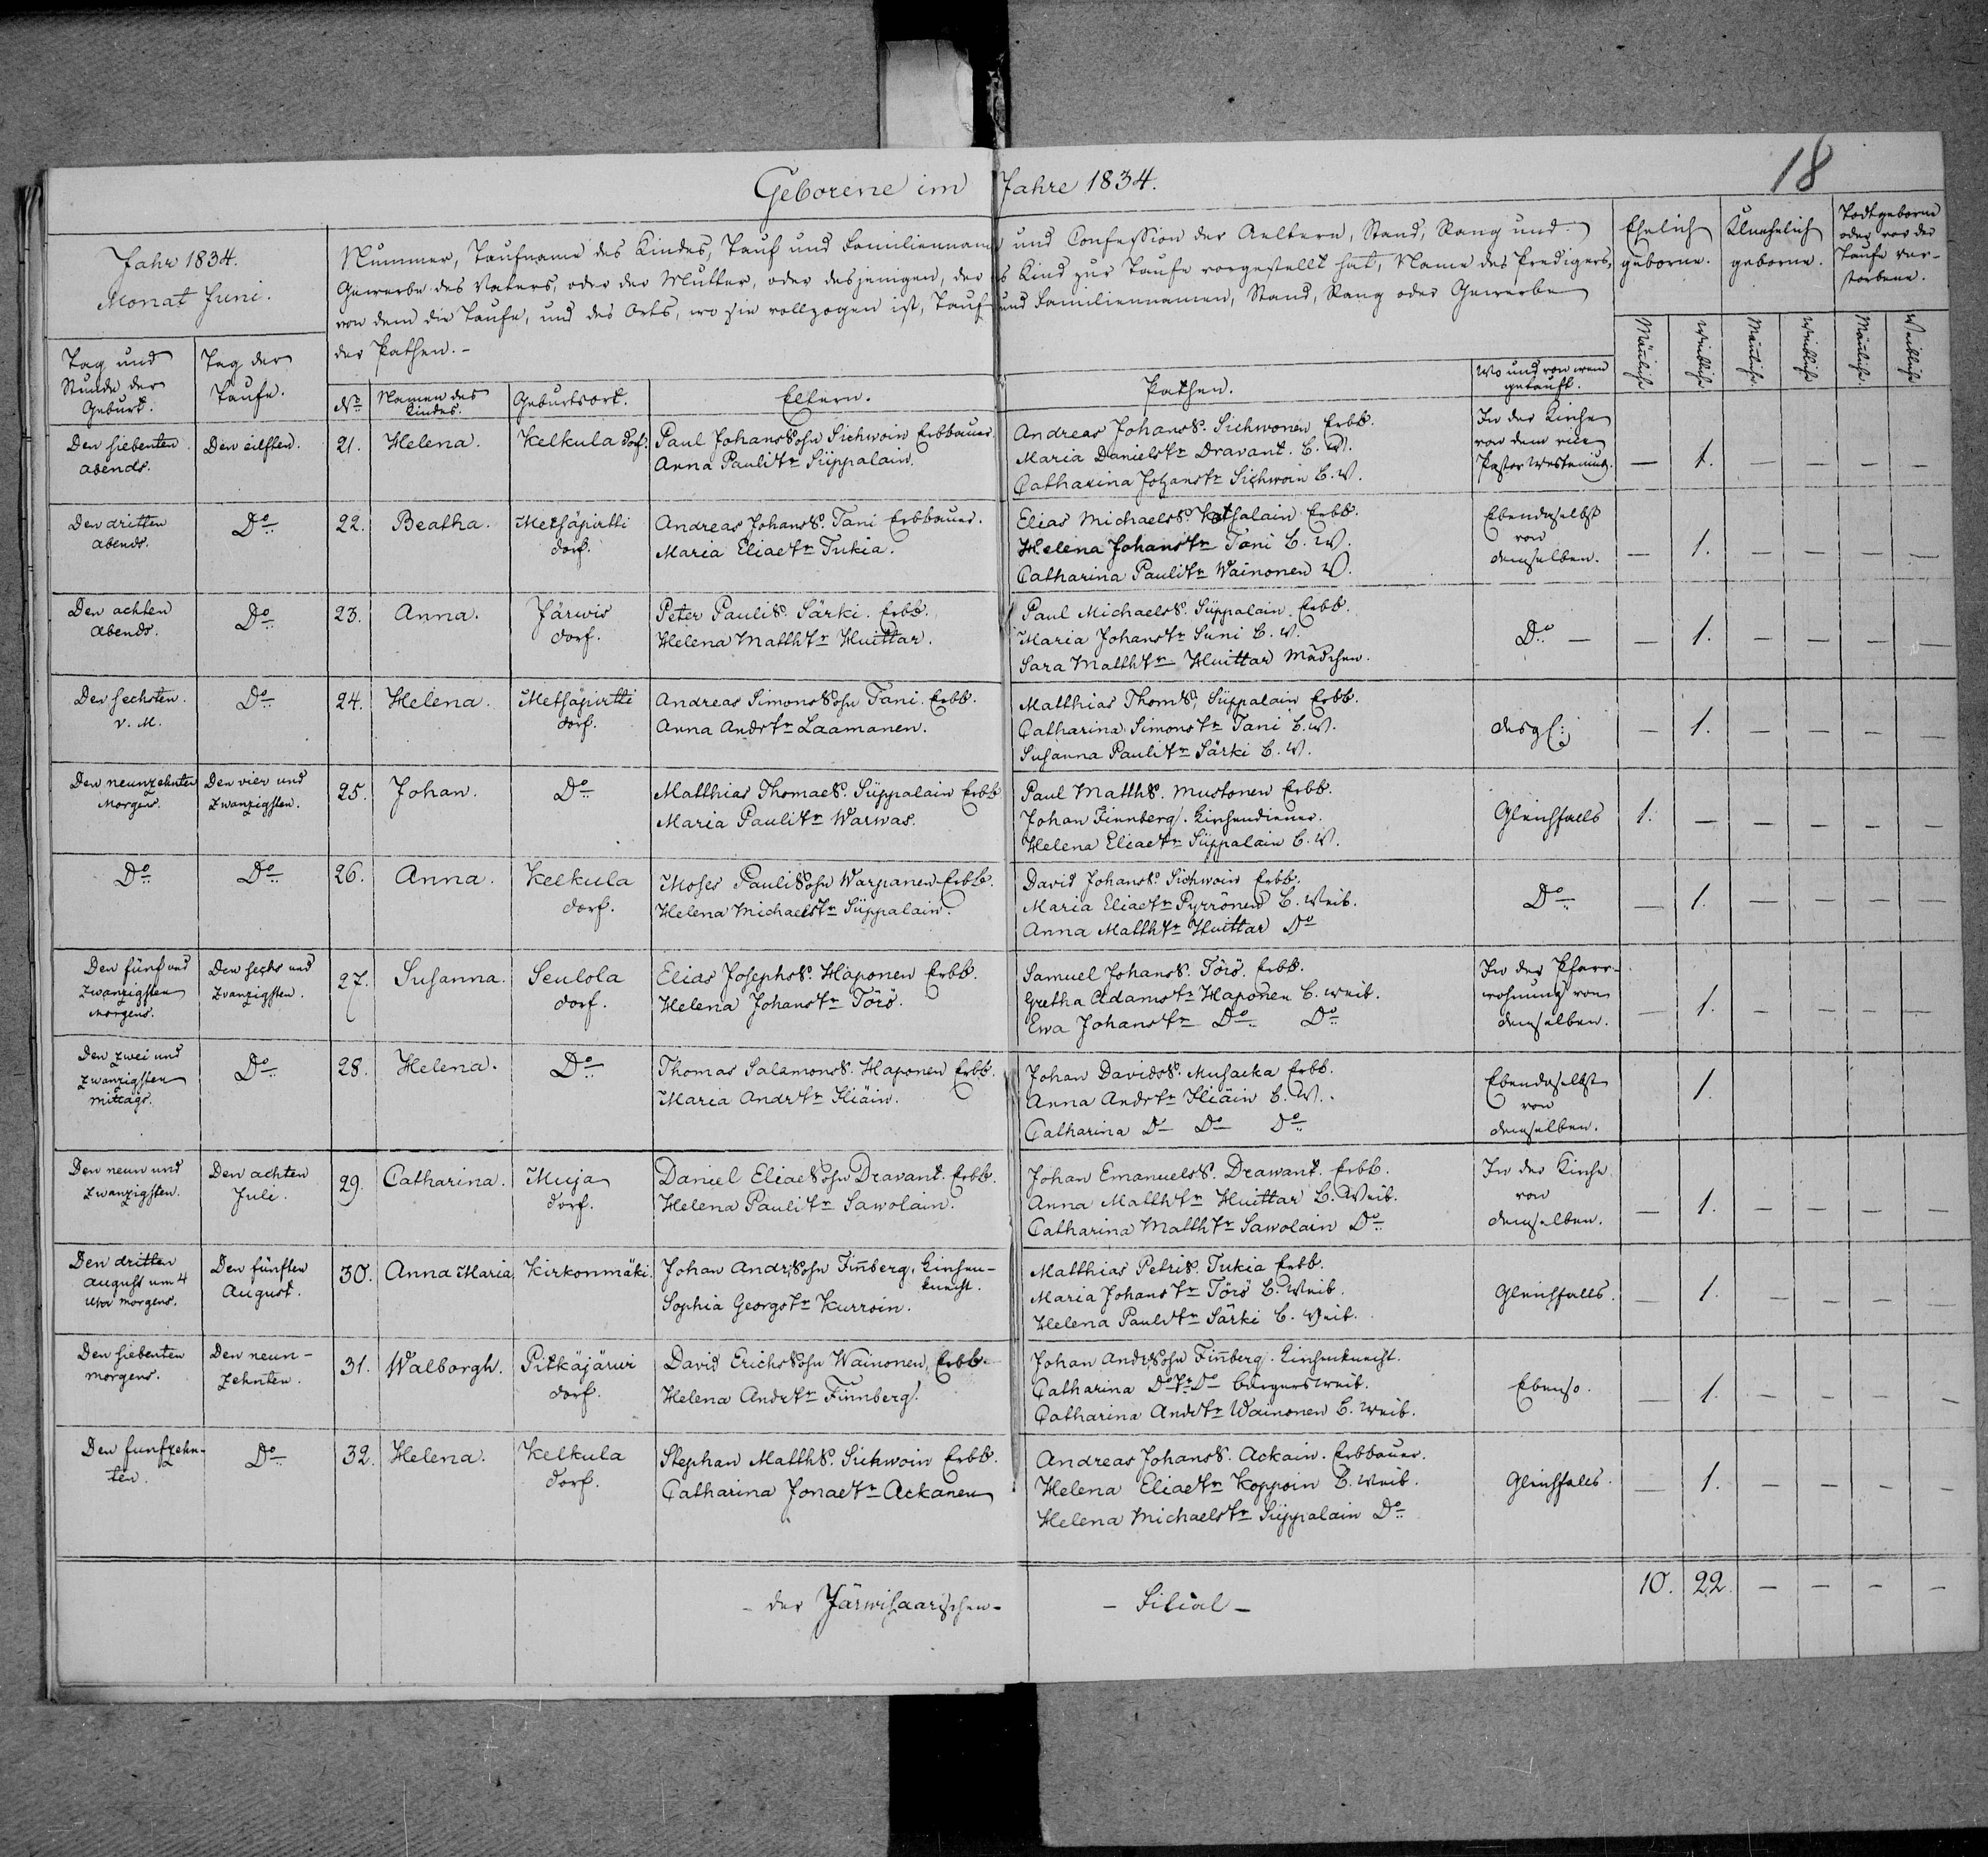 Geborene im Jahre 1834.
18
Jahr 1834.
Monat Juni.
Nummer, Taufname des Kindes, Tauf und Familienname und Confession der Aeltern, Stand, Rang und
Gewerbe des Vaters, oder der Mutter, oder desjenigen, der Kind zur Taufe vorgestellt hat, Name des Predigers,
von dem die Taufe, und des Orts, wo sie vollzogen ist, Tauf und Familiennamen, Stand, Rang oder Gewerbe
der Pathen.-
Ehelich geborne.
Unehelich geborne.
Todtgeborne oder vor der Taufe verstorbene.
Tag und Stunde der Geburt.
Tag der Taufe.
No
Namen des Kindes.
Geburtsort.
Eltern.
Pathen.
Wo und von wem getauft.
Männliche
Weibliche
Männliche
Weibliche
Männliche
Weibliche
Den siebenten abends.
Den eilften.
21.
Helena.
Kelkula dorf.
Paul Johans Sohn Sichwoin Erbbauer.
Anna Paulitr Süppalain.
Andreas JohansS. Sichwonen Erbb.
Maria Danielstr Dravant. E. W.
Catharina Johanstr Sichwoin E. W.
In der Kirche von dem vice Pastor
— 1. — — — —
Den dritten abends.
Do
22.
Beatha.
Metsäpirtti dorf.
Andreas JohansS. Tani Erbbauer.
Maria Eliaetr Tukia.
Elias MichaelsS. Erbb.
Helena Johanstr Tani E. W.
Catharina Paulitr Wainonen W.
Ebendaselbst von demselben.
— 1. — — — —
Den achten abends.
Do
23.
Anna.
Järwis dorf.
Peter PauliS. Särki. Erbb.
Helena Matthtr Huittar.
Paul MichaelsS. Süppalain. Erbb.
Maria Johanstr Suni E. W.
Sara Matthtr Huittar Mädchen.
Do —
— 1. — — — —
Den sechsten. v. M.
Do
24.
Helena.
Metsäpirtti dorf.
Andreas Simons Sohn Tani. Erbb.
Anna Andrtr Laamanen.
Matthias ThomS. Süppalain Erbb.
Catharina Simonstr Tani E. W.
Susanna Paulitr Särki E. W.
desgl:
— 1. — — — —
Den neunzehnten Morgens.
Den vier und zwanzigsten.
25.
Johan.
Do
Matthias ThomaeS. Süppalain Erbb
Maria Paulitr Warwas.
Paul MatthS. Mustonen Erbb.
Johan Finnberg. Kirchendiener.
Helena Eliaetr Süppalain E. W.
Gleichfalls
1. — — — — —
Do
Do
26.
Anna.
Kelkula dorf.
Moses Pauli Sohn Warpanen Erbb.
Helena Michaelstr Süppalain.
David JohansS. Sichwoin Erbb.
Maria Eliaetr Pyrrönen E. Weib.
Anna Matthtr Huittar Do
Do
— 1. — — — —
Den fünf und zwanzigsten Morgens.
Den sechs und zwanzigsten.
27.
Susanna.
Seulola dorf.
Elias JosephsS. Haponen Erbb.
Helena Johanstr Törö.
Samuel JohansS. Törö. Erbb.
Gretha Adamstr Haponen E. weib.
Ewa Johanstr Do Do
In der Pfarrwohnung von demselben.
— 1. — — — —
Den zwei und zwanzigsten mittags.
Do
28.
Helena.
Do
Thomas SalamonsS. Haponen Erbb.
Maria Andrtr Hiäin.
Johan DavidsS. Musacka Erbb.
Anna Andrtr Hiäin E. W.
Catharina Do Do Do
Ebendaselbst von demselben.
1.
Den neun und zwanzigsten.
Den achten Juli.
29.
Catharina.
Muja dorf.
Daniel Eliae Sohn Dravant. Erbb.
Helena Paulitr Sawolain.
Johan EmanuelsS. Drawant. Erbb.
Anna Matthtr Huittar E. Weib.
Catharina Matthtr Sawolain Do
In der Kirche von demselben.
— 1. — — — —
Den dritten august um 4 Uhr morgens.
Den fünften August.
30.
Anna Maria.
Kirkonmäki.
Johan Andr. Sohn Finberg, Kirchenknecht.
Sophia Georgstr Kurroin.
Matthias PetriS. Tukia Erbb.
Maria Johanstr Törö E. Weib.
Helena Paulitr Särki E. Weib.
Gleichfalls.
— 1. — — —
Den siebenten morgens.
Den neunzehnten.
31.
Walborgh.
Pitkäjärwi dorf.
David Erichs Sohn Wainonen, Erbb.
Helena Andrtr Finnberg.
Johan Andr. Sohn Finberg. Kirchenknecht.
Catharina Do tr Do bürgersweib.
Catharina Andrtr Wainonen E. Weib.
Ebenso.
— 1. — — — —
Den funfzehnten.
Do
32.
Helena.
Kelkula dorf.
Stephan MatthS. Sichwoin Erbb.
Catharina Jonaetr Ackanen
Andreas JohansS. Ackain. Erbbauer.
Helena Eliaetr Koppoin E. Weib.
Helena Michaelstr Süppalain Do
Gleichfalls.
— 1. — — — —
- der Järwisaarischen -
- Filial -
10. 22. — — — —